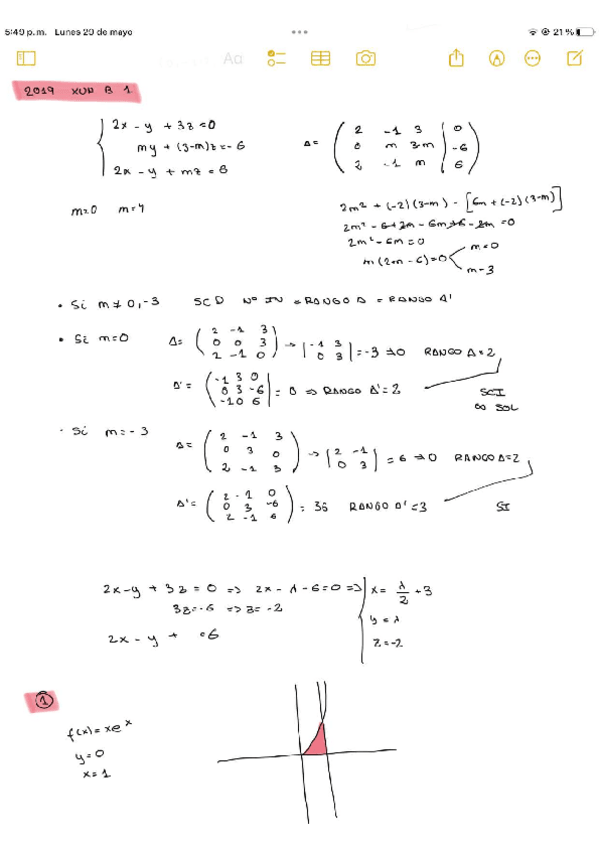 5:49 p.m. Lunes 20 de mayo
21 %
Aa
2019 XUN B 1
2x - y + 3z = 0
my + (3-m)z = -6
2x - y + mz = 6
A = ( 2 -1 3 | 0
0 m 3-m | -6
2 -1 m | 6 )
m=0 m=4
2m² + (-2)(3-m) - [6m + (-2)(3-m)]
2m² - 6+2m - 6m+6 - 2m = 0
2m² - 6m = 0
m(2m - 6) = 0
m=0
m-3
• Si m ≠ 0,-3 SCD Nº IN = RANGO A = RANGO A'
• Si m=0 A= ( 2 -1 3
0 0 3
2 -1 0 ) → | -1 3
0 3 | = -3 ≠0 RANGO A=2
A'= ( -1 3 0
0 3 -6
-1 0 6 | = 0 => RANGO A'=2
SCI
∞ SOL
- Si m=-3 A= ( 2 -1 3
0 3 0
2 -1 3 ) → | 2 -1
0 3 | = 6 ≠0 RANGO A=2
A'= ( 2 -1 0
0 3 -6
2 -1 6 ) = 36 RANGO A'=3 SI
2x-y + 3z = 0 => 2x - λ - 6=0 =>
3z=-6 => z=-2
2x - y + =6
x= λ/2 +3
y=λ
z=-2
1
f(x)=xe^x
y=0
x=1